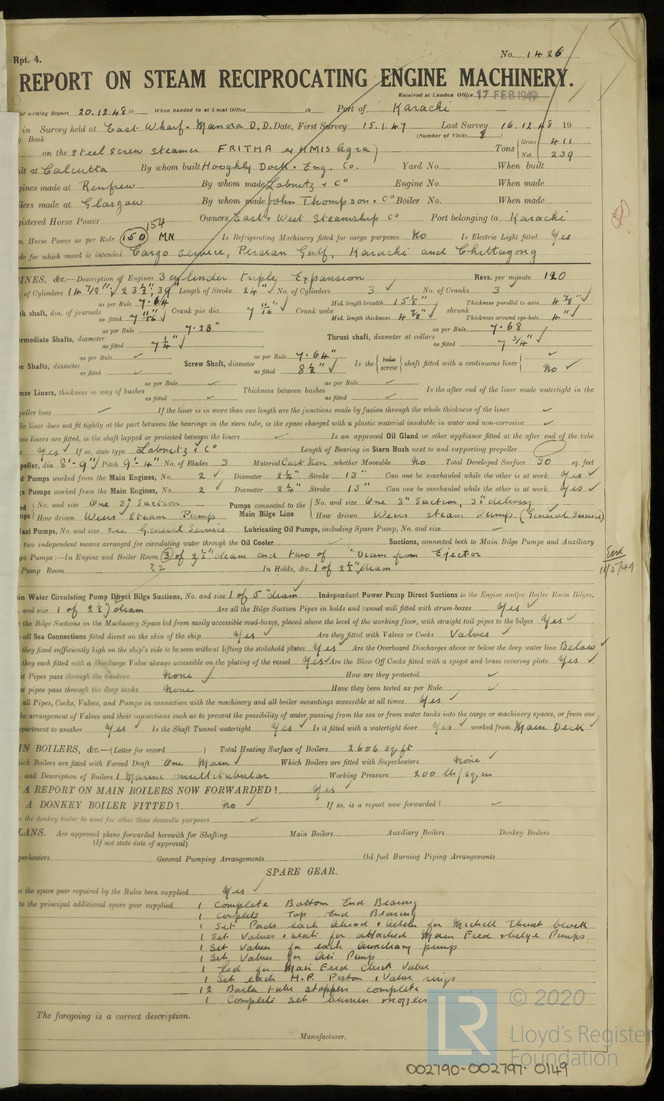 Rpt. 4.
No. 1426
REPORT ON STEAM RECIPROCATING ENGINE MACHINERY.
Received at London Office 17 FEB 1949
of writing Report 20.12.48 19 When handed in at Local Office 19 Port of Karachi
in Survey held at East Wharf. Manora D.D. Date, First Survey 15.1.47 Last Survey 16.12.48 19
Book (Number of Visits 8)
on the Steel screw steamer FRITHA ex HMIS Agra) Tons Gross 411 Net 239
at Calcutta By whom built Hooghly Dock & Eng. Co. Yard No. When built
made at Renfrew By whom made Lobnitz & Co Engine No. When made
made at Glasgow By whom made John Thompson & Co Boiler No. When made
Registered Horse Power Owners East & West Steamship Co Port belonging to Karachi
154
Horse Power as per Rule 150 MN Is Refrigerating Machinery fitted for cargo purposes No Is Electric Light fitted Yes
for which vessel is intended Cargo service, Persian Gulf, Karachi and Chittagong
INES, &c.—Description of Engines 3 cylinder Triple Expansion Revs. per minute 120
of Cylinders 14 7/8" 23 1/2", 39" Length of Stroke 24" No. of Cylinders 3 No. of Cranks 3
shaft, dia. of journals as per Rule 7.64 as fitted 7 11/16" Crank pin dia. 7 11/16" Crank webs Mid. length breadth 15 1/8" Mid. length thickness 4 7/8" shrunk Thickness parallel to axis 4 7/8" Thickness around eye-hole 4"
Intermediate Shafts, diameter as per Rule 7.28" as fitted 7 1/2" Thrust shaft, diameter at collars as per Rule 7.68 as fitted 7 3/4"
Shafts, diameter as per Rule as fitted Screw Shaft, diameter as per Rule 7.64" as fitted 8 1/2" Is the {tube screw} shaft fitted with a continuous liner No
Liners, thickness in way of bushes as per Rule as fitted Thickness between bushes as per Rule as fitted Is the after end of the liner made watertight in the
propeller boss If the liner is in more than one length are the junctions made by fusion through the whole thickness of the liner
the liner does not fit tightly at the part between the bearings in the stern tube, is the space charged with a plastic material insoluble in water and non-corrosive
liners are fitted, is the shaft lapped or protected between the liners Is an approved Oil Gland or other appliance fitted at the after end of the tube
Yes If so, state type Lobnitz & Co Length of Bearing in Stern Bush next to and supporting propeller
Propeller, dia. 8'-9" Pitch 9'-4" No. of Blades 3 Material Cast Iron whether Moveable No Total Developed Surface 30 sq. feet
Pumps worked from the Main Engines, No. 2 Diameter 2 1/4" Stroke 13" Can one be overhauled while the other is at work Yes
Pumps worked from the Main Engines, No. 2 Diameter 2 1/4" Stroke 13" Can one be overhauled while the other is at work Yes
{No. and size One 3" Suction How driven Weirs' Steam Pump Pumps connected to the Main Bilge Line {No. and size One 3" Suction, 3" delivery How driven Weirs steam pump. (General Service)
Pumps, No. and size see General Service Lubricating Oil Pumps, including Spare Pump, No. and size
two independent means arranged for circulating water through the Oil Cooler Suctions, connected both to Main Bilge Pumps and Auxiliary
Pumps:—In Engine and Boiler Room 3 of 2 1/2" diam and two of "diam from Ejector
Pump Room In Holds, &c. 1 of 2 1/2" diam
Water Circulating Pump Direct Bilge Suctions, No. and size 1 of 5" diam Independent Power Pump Direct Suctions to the Engine and/or Boiler Room Bilges,
and size 1 of 2 1/2" diam Are all the Bilge Suction Pipes in holds and tunnel well fitted with strum-boxes Yes
the Bilge Suctions in the Machinery Space led from easily accessible mud-boxes, placed above the level of the working floor, with straight tail pipes to the bilges Yes
all Sea Connections fitted direct on the skin of the ship Yes Are they fitted with Valves or Cocks Valves
they fixed sufficiently high on the ship's side to be seen without lifting the stokehold plates Yes Are the Overboard Discharges above or below the deep water line Below
they each fitted with a Discharge Valve always accessible on the plating of the vessel Yes Are the Blow Off Cocks fitted with a spigot and brass covering plate Yes
Pipes pass through the bunkers None How are they protected
pipes pass through the deep tanks None Have they been tested as per Rule
all Pipes, Cocks, Valves, and Pumps in connection with the machinery and all boiler mountings accessible at all times Yes
the arrangement of Valves and their connections such as to prevent the possibility of water passing from the sea or from water tanks into the cargo or machinery spaces, or from one
compartment to another Yes Is the Shaft Tunnel watertight Yes Is it fitted with a watertight door Yes worked from Main Deck
IN BOILERS, &c.—(Letter for record ) Total Heating Surface of Boilers 2606 sq ft
Boilers are fitted with Forced Draft One Main Which Boilers are fitted with Superheaters None
and Description of Boilers 1 Marine multitubular Working Pressure 200 lb/sq. in
A REPORT ON MAIN BOILERS NOW FORWARDED? Yes
A DONKEY BOILER FITTED? No If so, is a report now forwarded?
the donkey boiler to be used for other than domestic purposes
PLANS. Are approved plans forwarded herewith for Shafting Main Boilers Auxiliary Boilers Donkey Boilers
(If not state date of approval)
Superheaters General Pumping Arrangements Oil fuel Burning Piping Arrangements
SPARE GEAR.
the spare gear required by the Rules been supplied Yes
the principal additional spare gear supplied 1 Complete Bottom End Bearing
1 Complete Top End Bearing
1 Set Pads each Ahead & astern for Michell Thrust block
1 Set Valves & seats for attached Main Feed & bilge Pumps
1 Set Valves for each auxiliary pump
1 Set Valves for Air Pump
1 Lid for Main Feed check Valve
1 Set each H.P. Piston & Valve rings
12 Boiler tube stoppers complete
1 Complete set burner nozzles
The foregoing is a correct description.
Manufacturer.
LR © 2020
Lloyd's Register
Foundation
002790-002797-0149